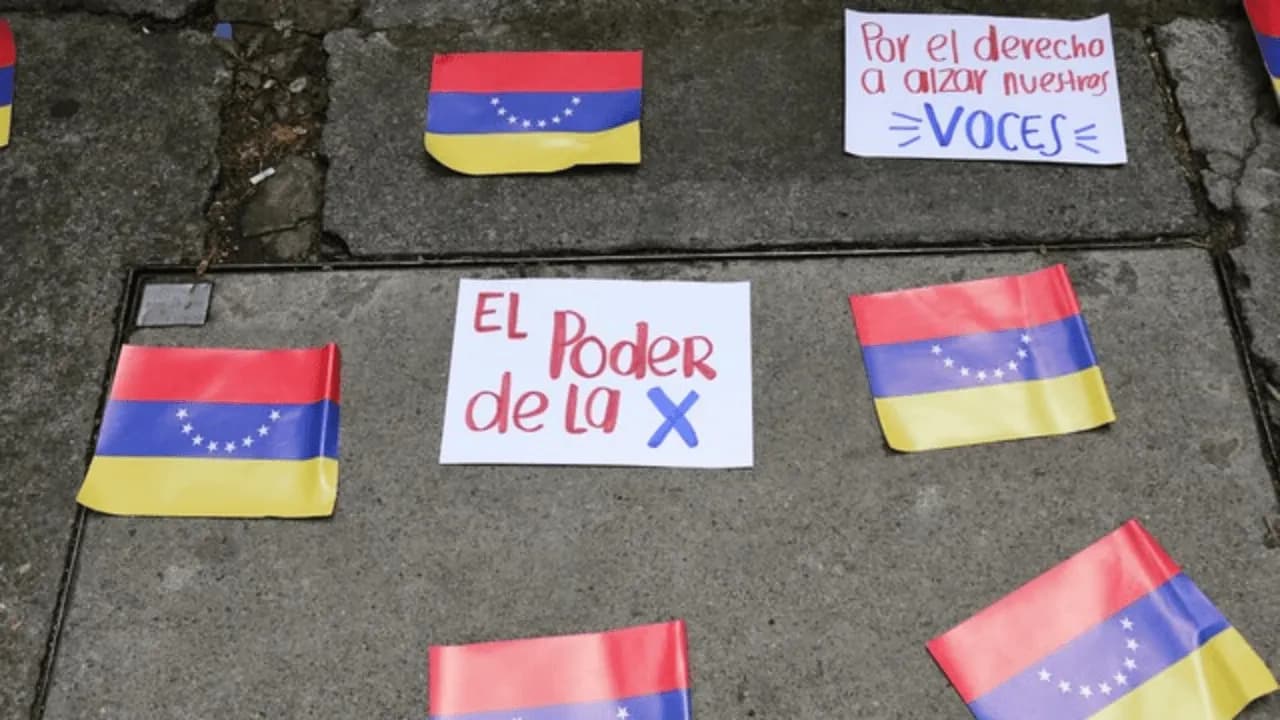 Por el derecho
a alzar nuestras
VOCES
EL Poder
de la X